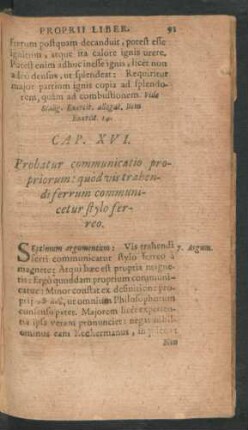 PROPRII LIBER. 91
Ferrum postquam decanduit, potest esse
ignitum, atque ita calore ignis urere.
Potest enim adhuc inesse ignis, licet non
adeò densus, ut splendeat: Requiritur
major partium ignis copia ad splendo-
rem, quàm ad combustionem. Vide
Scalig. Exercit. allegat. Item
Exercit. 14.
CAP. XVI.
Probatur communicatio pro-
priorum: quòd vis trahen-
di ferrum communi-
cetur stylo fer-
reo.
SEptimum argumentum: Vis trahendi 7. Argum.
ferri communicatur stylo ferreo à
magnete; Atqui haec est propria magne-
tis: Ergò quoddam proprium communi-
catur: Minor constat ex definitione pro-
prij ut omnium Philosophorum
consensu patet. Majorem licèt experien-
tia ipsa veram pronunciet: negat
ominus eam Keckermanus, in